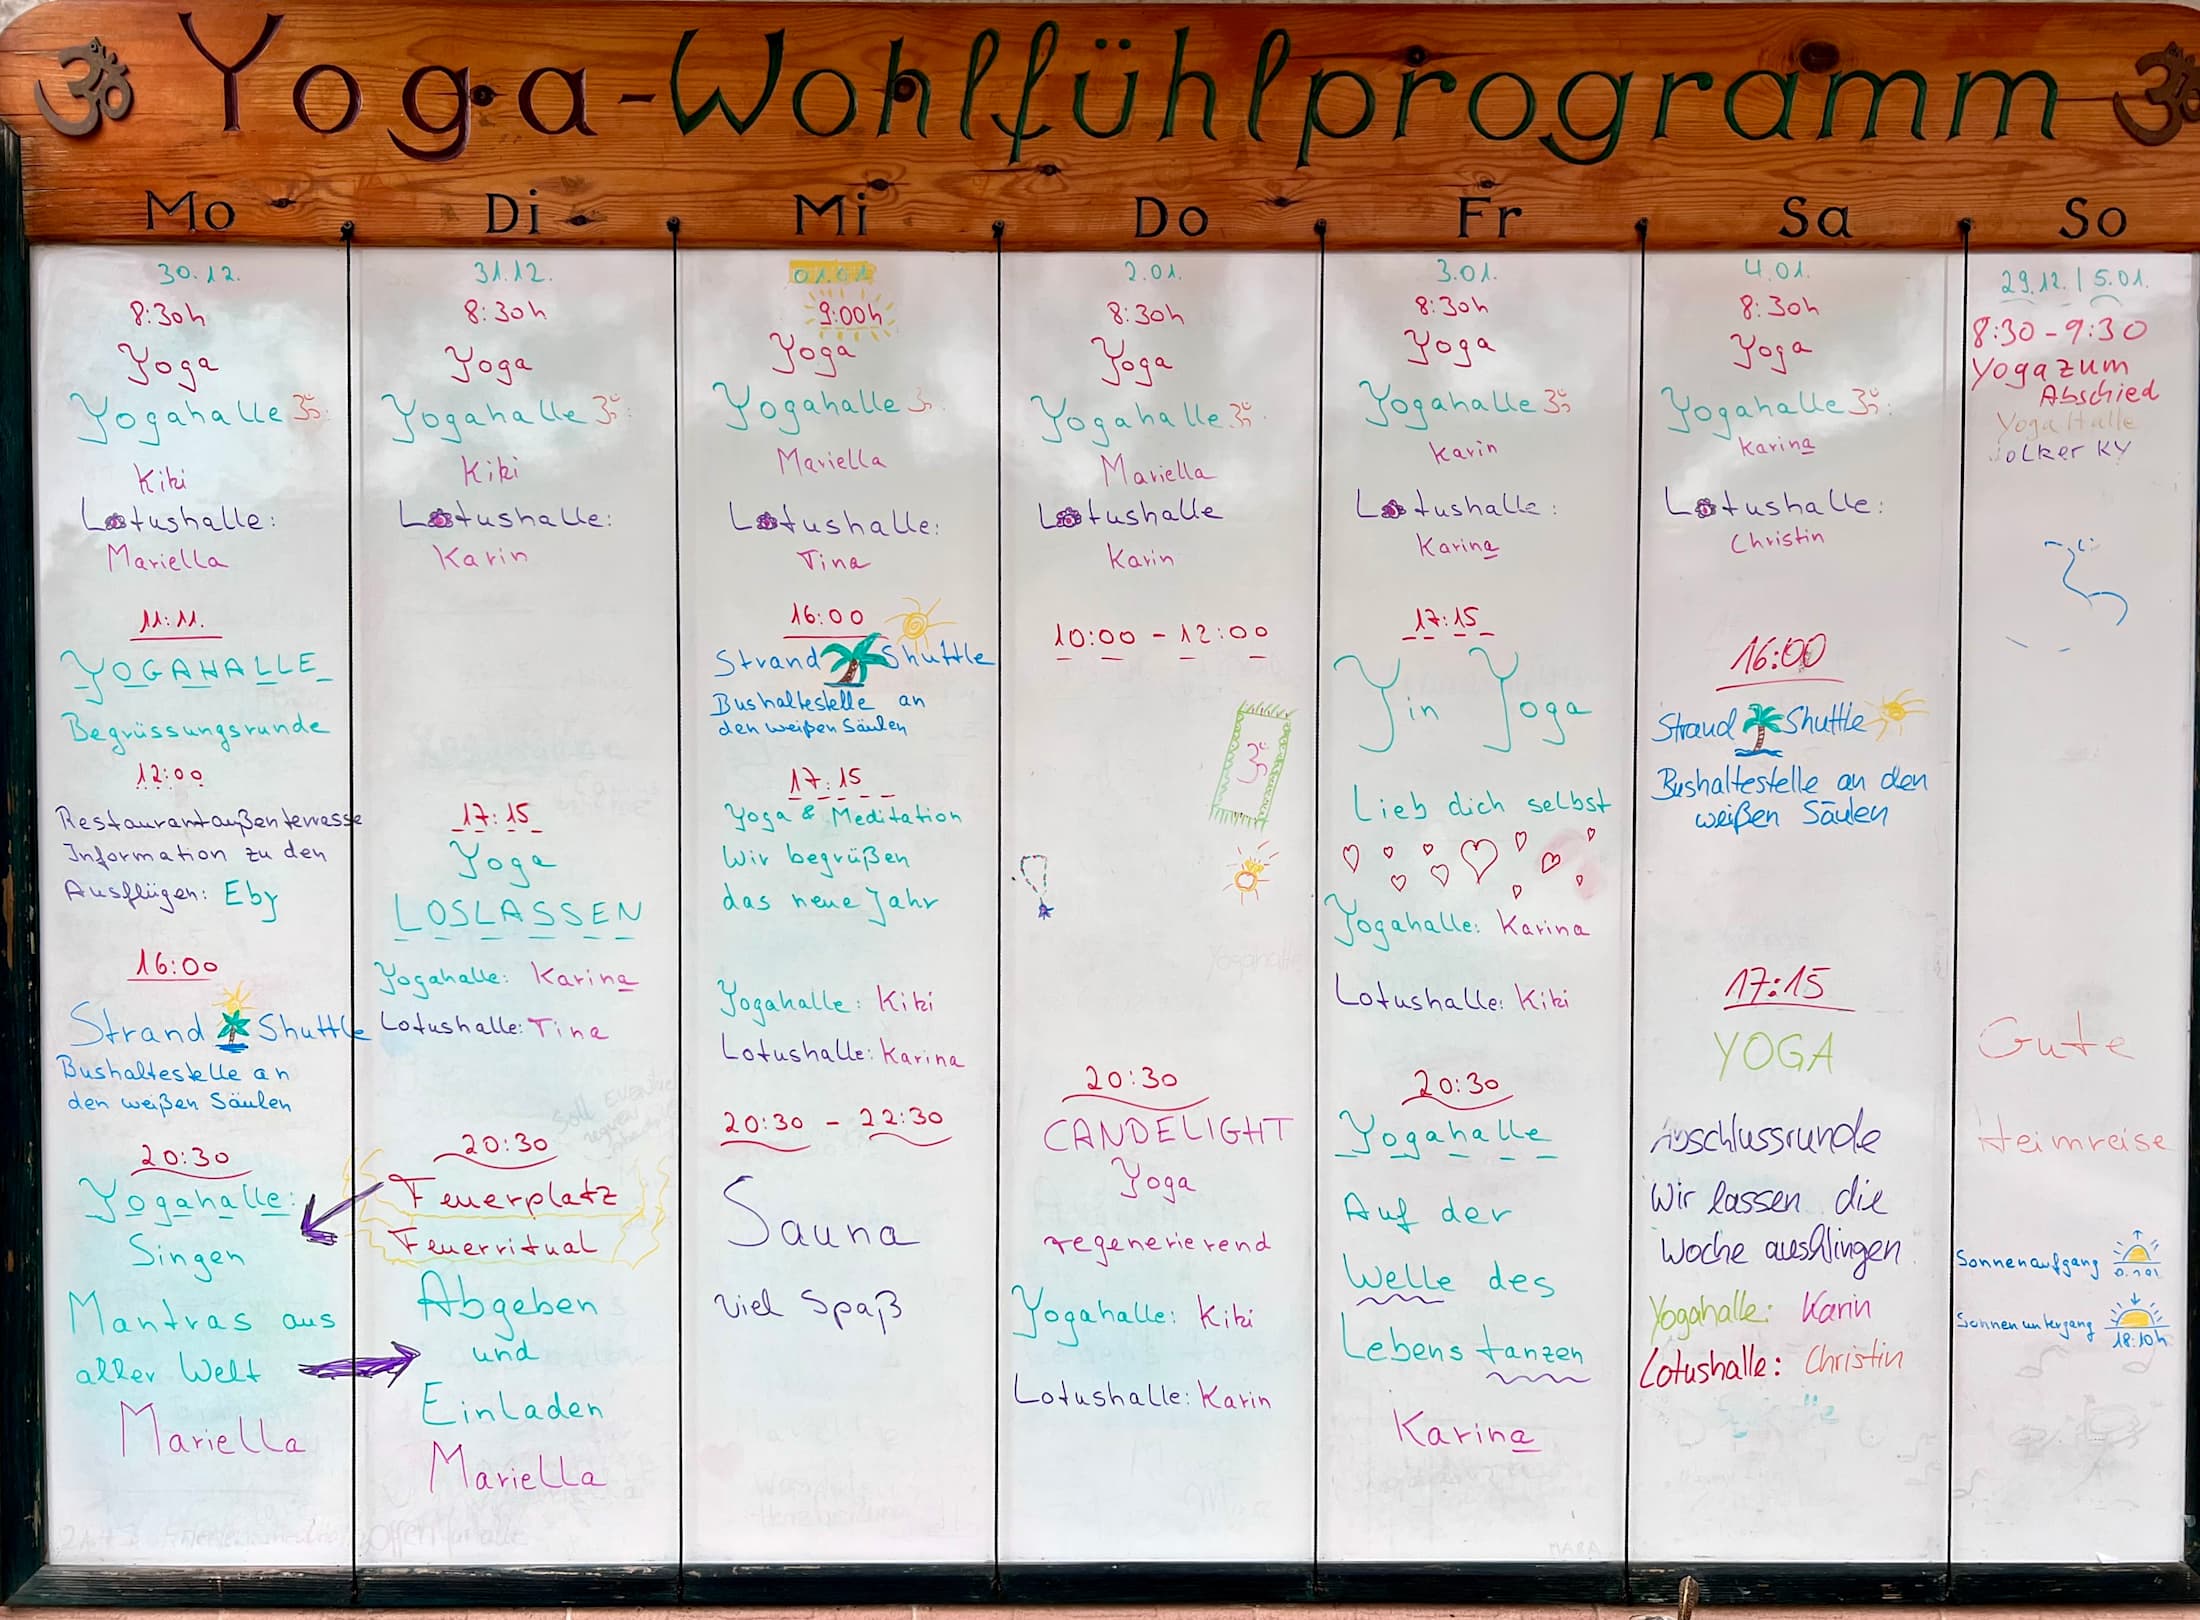 Yoga-Wohlfühlprogramm
Mo
30.12.
8:30h
Yoga
Yogahalle ॐ:
Kiki
Lotushalle:
Mariella
11:11.
YOGAHALLE
Begrüssungsrunde
12:00
Restaurantaußenterrasse
Information zu den
Ausflügen: Eby
16:00
Strand Shuttle
Bushaltestelle an
den weißen Säulen
20:30
Yogahalle:
Singen
Mantras aus
aller Welt
Mariella
Di
31.12.
8:30h
Yoga
Yogahalle ॐ:
Kiki
Lotushalle:
Karin
17:15
Yoga
LOSLASSEN
Yogahalle: Karina
Lotushalle: Tina
20:30
Feuerplatz
Feuerritual
Abgeben
und
Einladen
Mariella
Mi
01.01
9:00h
Yoga
Yogahalle
Mariella
Lotushalle:
Tina
16:00
Strand Shuttle
Bushaltestelle an
den weißen Säulen
17:15
Yoga & Meditation
Wir begrüßen
das neue Jahr
Yogahalle: Kiki
Lotushalle: Karina
20:30 - 22:30
Sauna
viel Spaß
Do
2.01.
8:30h
Yoga
Yogahalle ॐ.
Mariella
Lotushalle
Karin
10:00 - 12:00
ॐ
20:30
CANDELIGHT
Yoga
regenerierend
Yogahalle: Kiki
Lotushalle: Karin
Fr
3.01.
8:30h
Yoga
Yogahalle ॐ
Karin
Lotushalle:
Karina
17:15
Yin Yoga
Lieb dich selbst
Yogahalle: Karina
Lotushalle: Kiki
20:30
Yogahalle
Auf der
Welle des
Lebens tanzen
Karina
Sa
4.01.
8:30h
Yoga
Yogahalle ॐ:
Karina
Lotushalle:
Christin
16:00
Strand Shuttle
Bushaltestelle an den
weißen Säulen
17:15
YOGA
Abschlussrunde
Wir lassen die
Woche ausklingen
Yogahalle: Karin
Lotushalle: Christin
So
29.12. | 5.01.
8:30-9:30
Yoga zum
Abschied
Yoga Halle
Gute
Heimreise
Sonnenaufgang
Sonnenuntergang
18:10h